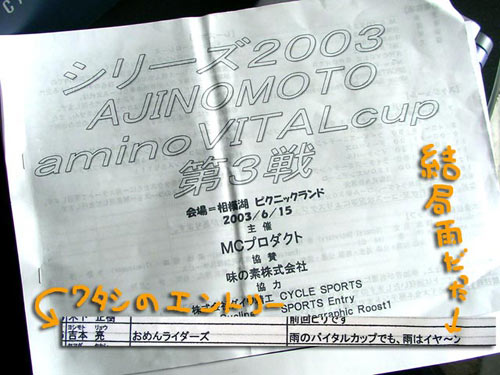 シリーズ2003
AJINOMOTO
amino VITAL cup
第3戦
会場=相模湖 ピクニックランド
2003/6/15
主催
MCプロダクト
協賛
味の素株式会社
協力
CYCLE SPORTS
SPORTS Entry
graphic Roost1
結局雨だった
ワタシのエントリー
前回ビリです
ヨシモト リョウ
吉本 亮
おめんライダーズ
雨のバイタルカップでも、雨はイヤ〜ン